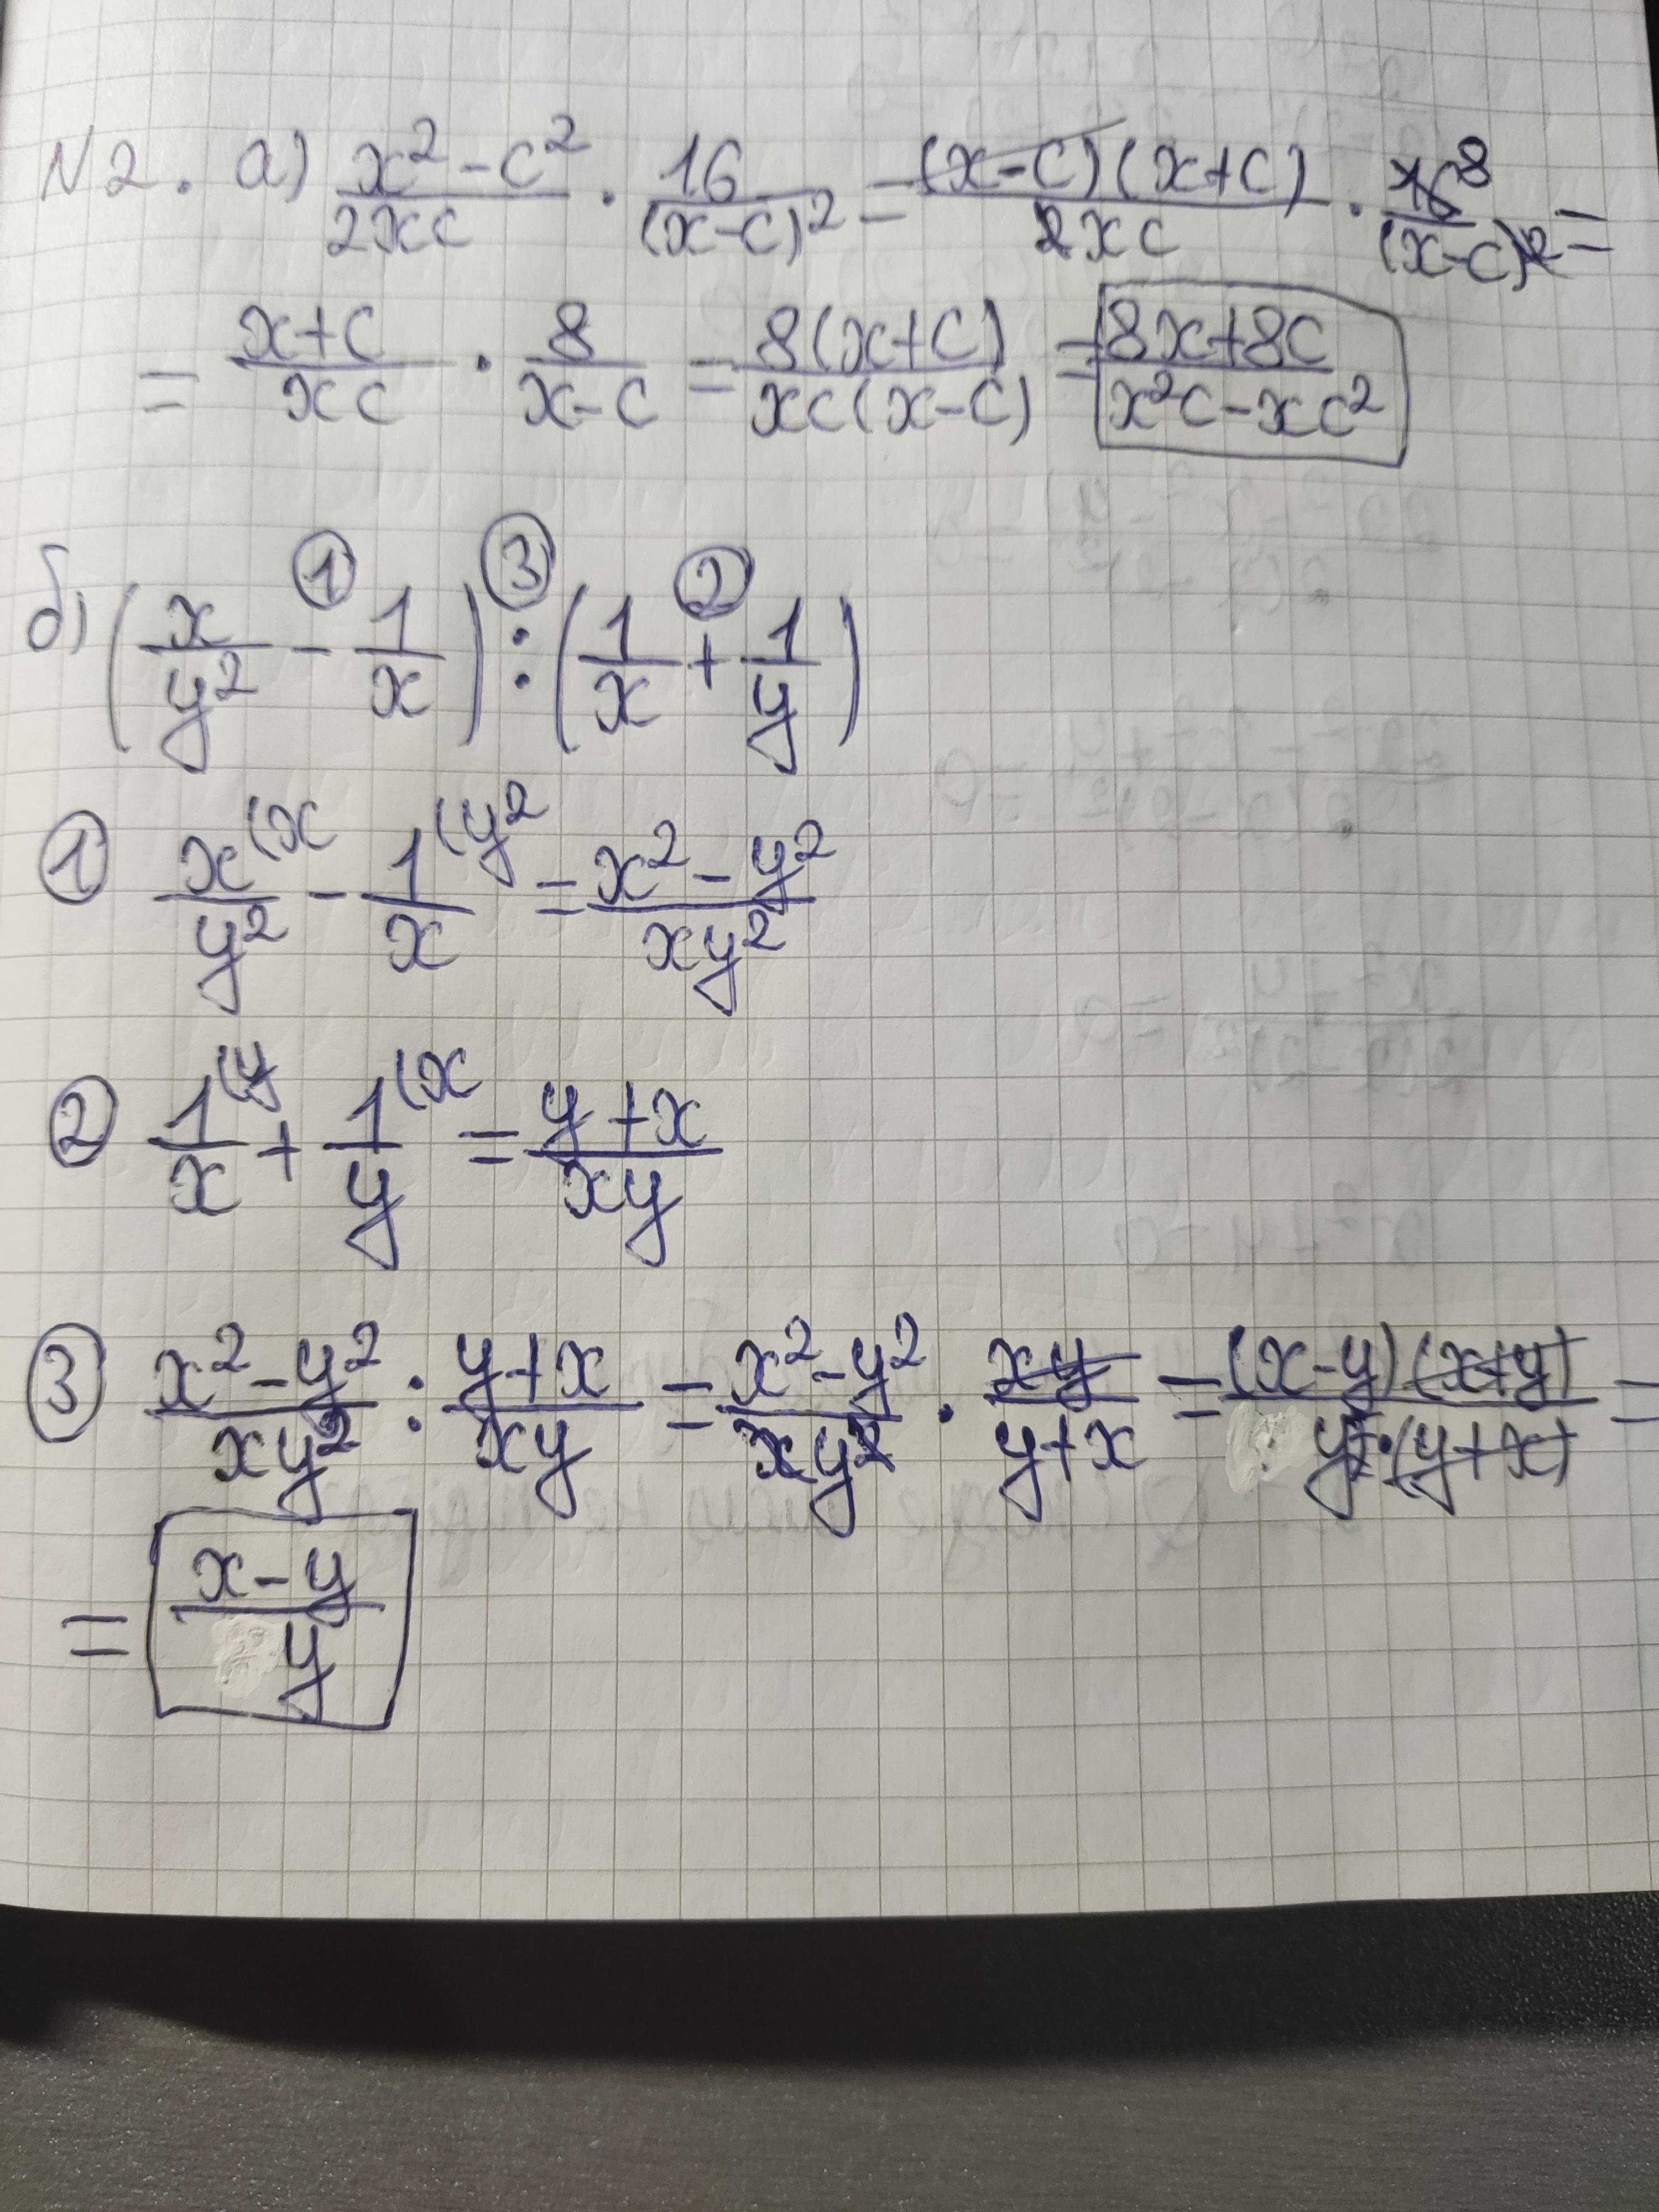 N2. а) (x²-c²)/(2xc) · 16/(x-c)² = (x-c)(x+c)/(2xc) · 16⁸/(x-c)² =
= (x+c)/(xc) · 8/(x-c) = 8(x+c)/(xc(x-c)) = (8x+8c)/(x²c-xc²)
① ③ ②
б) (x/y² - 1/x) : (1/x + 1/y)
① x/y² ⁽ˣ - 1/x ⁽ʸ² = (x²-y²)/(xy²)
② 1/x ⁽ʸ + 1/y ⁽ˣ = (y+x)/(xy)
③ (x²-y²)/(xy²) : (y+x)/(xy) = (x²-y²)/(xy²) · (xy)/(y+x) = (x-y)(x+y)/(y·(y+x)) =
= (x-y)/y